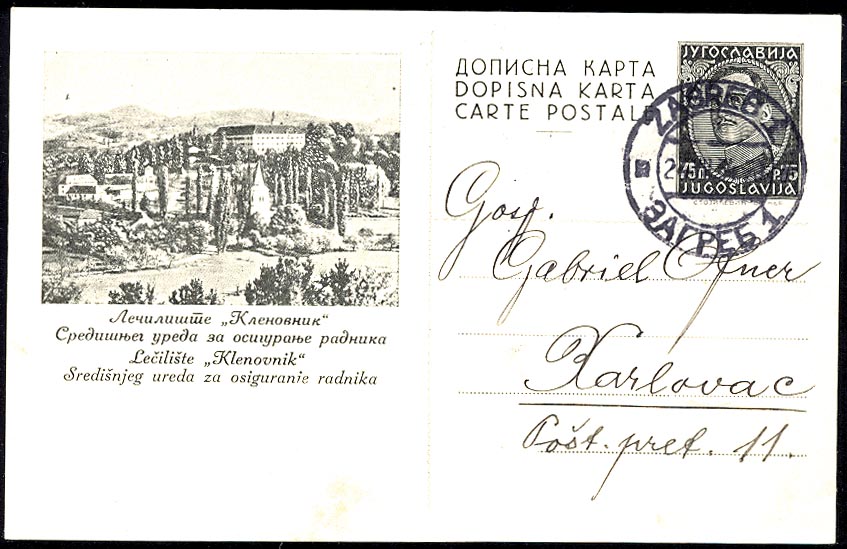 Лечилиште „Кленовник“
Средишњег уреда за осигурање радника
Lečilište „Klenovnik“
Središnjeg ureda za osiguranje radnika
ДОПИСНА КАРТА
DOPISNA KARTA
CARTE POSTALE
ЈУГОСЛАВИЈА
75 П. P. 75
JUGOSLAVIJA
ZAGREB 1
ЗАГРЕБ 1
Gosp.
Gabriel Ofner
Karlovac
Pošt. pret. 11.